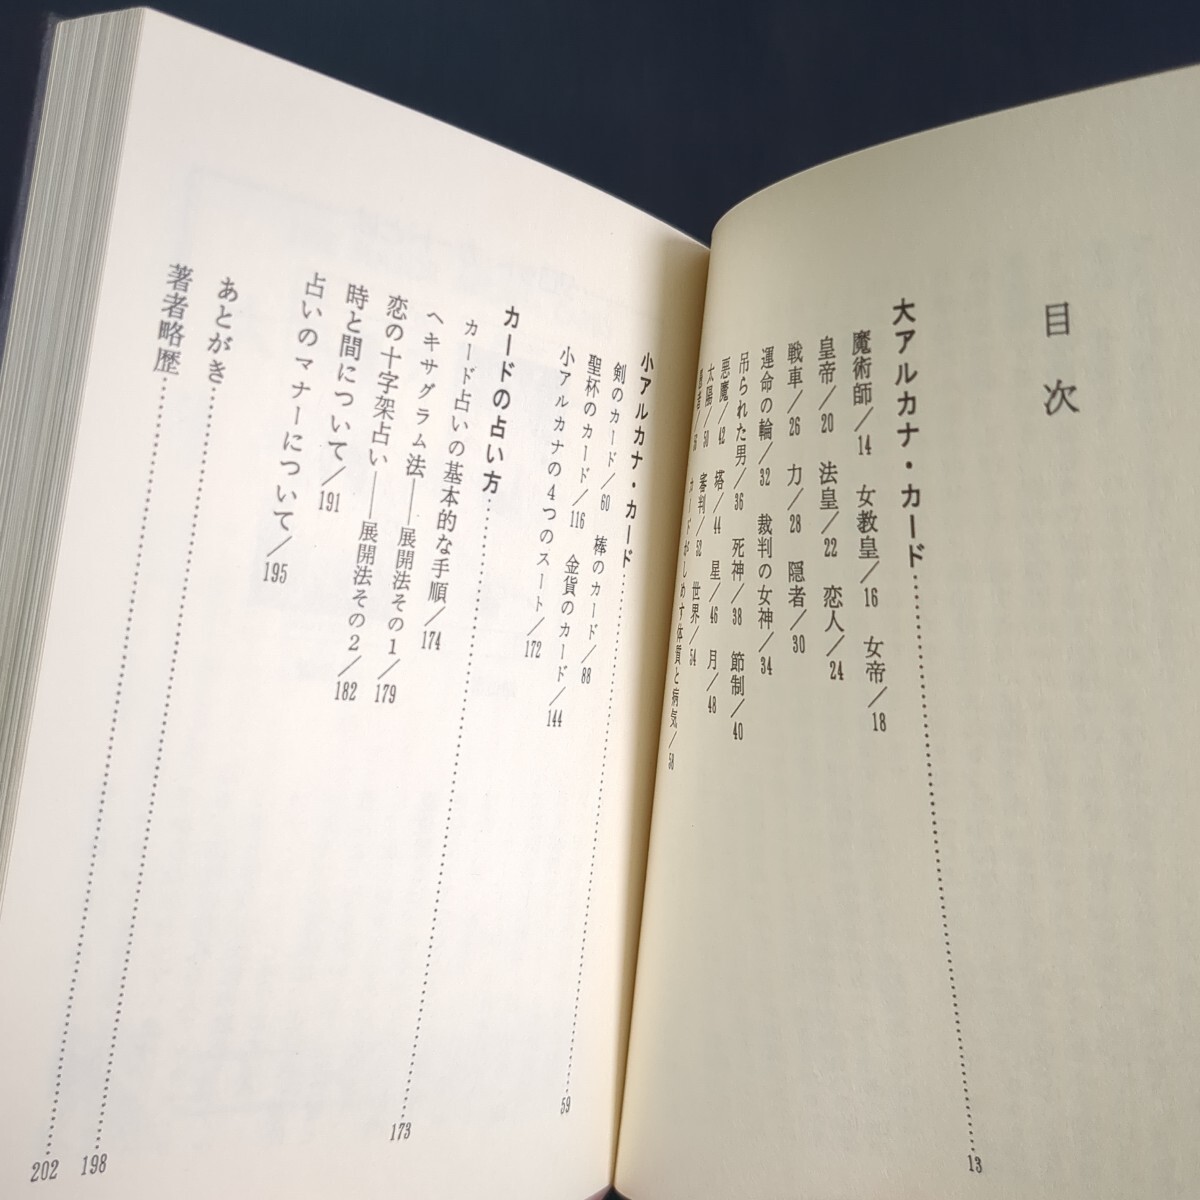 目次
大アルカナ・カード…………13
魔術師／14　女教皇／16　女帝／18
皇帝／20　法皇／22　恋人／24
戦車／26　力／28　隠者／30
運命の輪／32　裁判の女神／34
吊られた男／36　死神／38　節制／40
悪魔／42　塔／44　星／46　月／48
太陽／50　審判／52　世界／54
カードがしめす体質と病気／58
小アルカナ・カード…………59
剣のカード／60　棒のカード／88
聖杯のカード／116　金貨のカード／144
小アルカナの4つのスート／172
カードの占い方…………173
カード占いの基本的な手順／174
ヘキサグラム法――展開法その1／179
恋の十字架占い――展開法その2／182
時と間について／191
占いのマナーについて／195
あとがき…………198
著者略歴…………202